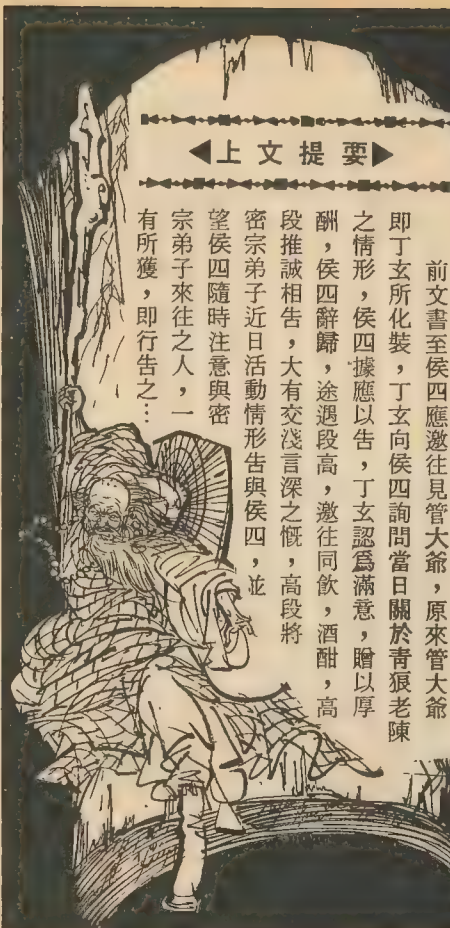 ◀上文提要▶
前文書至侯四應邀往見管大爺，原來管大爺
即丁玄所化裝，丁玄向侯四詢問當日關於青狼老陳
之情形，侯四據應以告，丁玄認爲滿意，贈以厚
酬，侯四辭歸，途遇段高，邀往同飲，酒酣，高
段推誠相告，大有交淺言深之慨，高段將
密宗弟子近日活動情形告與侯四，並
望侯四隨時注意與密
宗弟子來往之人，一
有所獲，即行告之…